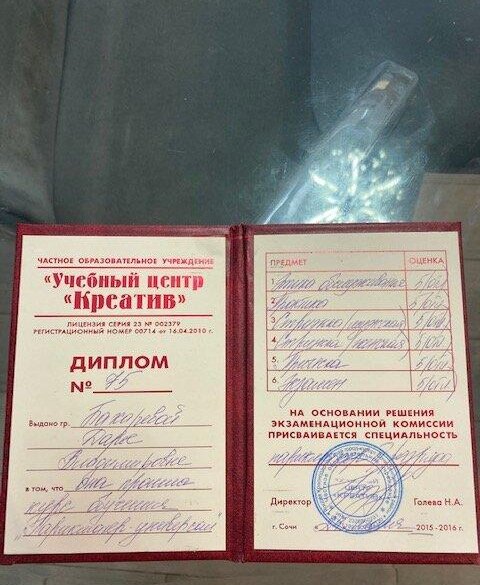 ЧАСТНОЕ ОБРАЗОВАТЕЛЬНОЕ УЧРЕЖДЕНИЕ
"Учебный центр
"Креатив"
ЛИЦЕНЗИЯ СЕРИЯ 23 № 002379
РЕГИСТРАЦИОННЫЙ НОМЕР 00714 от 16.04.2010 г.
ДИПЛОМ
№ 75
Выдано гр.
Дарье
Владимировне
в том, что она прошла
курс обучения
"Парикмахер универсал"
ПРЕДМЕТ ОЦЕНКА
1. Этика обслуживания 5(отл)
2. 5(отл)
3. Стрижка мужская 5(отл)
4. Стрижка женская 5(отл)
5. Прическа 5(отл)
6. Экзамен 5(отл)
НА ОСНОВАНИИ РЕШЕНИЯ
ЭКЗАМЕНАЦИОННОЙ КОМИССИИ
ПРИСВАИВАЕТСЯ СПЕЦИАЛЬНОСТЬ
парикмахер
Директор Голева Н.А.
г. Сочи 2015-2016 г.